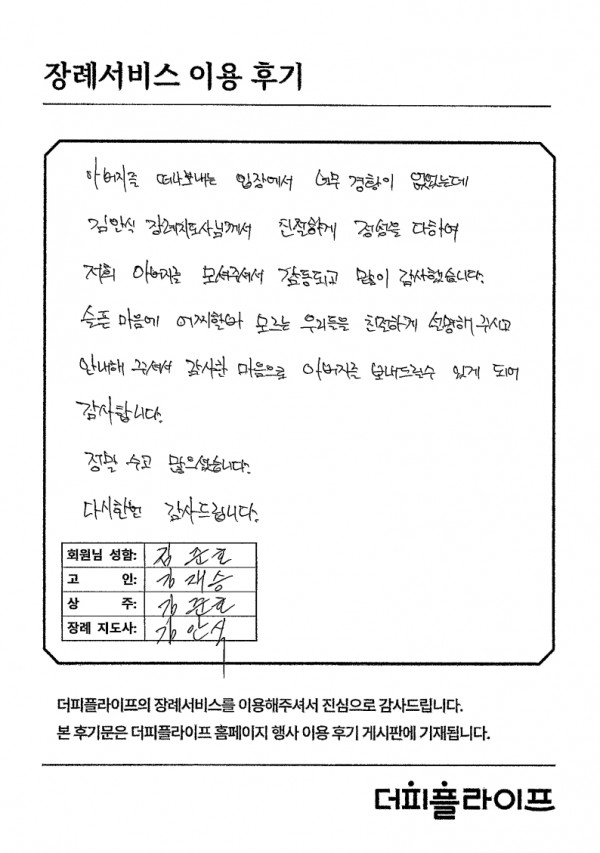 장례서비스 이용 후기
아버지를 떠나보내는 입장에서 너무 경황이 없었는데
김안식 장례지도사님께서 친절하게 정성을 다하여
저희 아버지를 모셔주셔서 감동되고 많이 감사했습니다.
슬픈 마음에 어찌할바 모르는 우리들을 친절하게 설명해 주시고
안내해 주셔서 감사한 마음으로 아버지를 보내드릴수 있게 되어
감사합니다.
정말 수고 많으셨습니다.
다시한번 감사드립니다.
회원님 성함: 김준호
고 인: 김재승
상 주: 김준호
장례 지도사: 김안식
더피플라이프의 장례서비스를 이용해주셔서 진심으로 감사드립니다.
본 후기문은 더피플라이프 홈페이지 행사 이용 후기 게시판에 기재됩니다.
더피플라이프